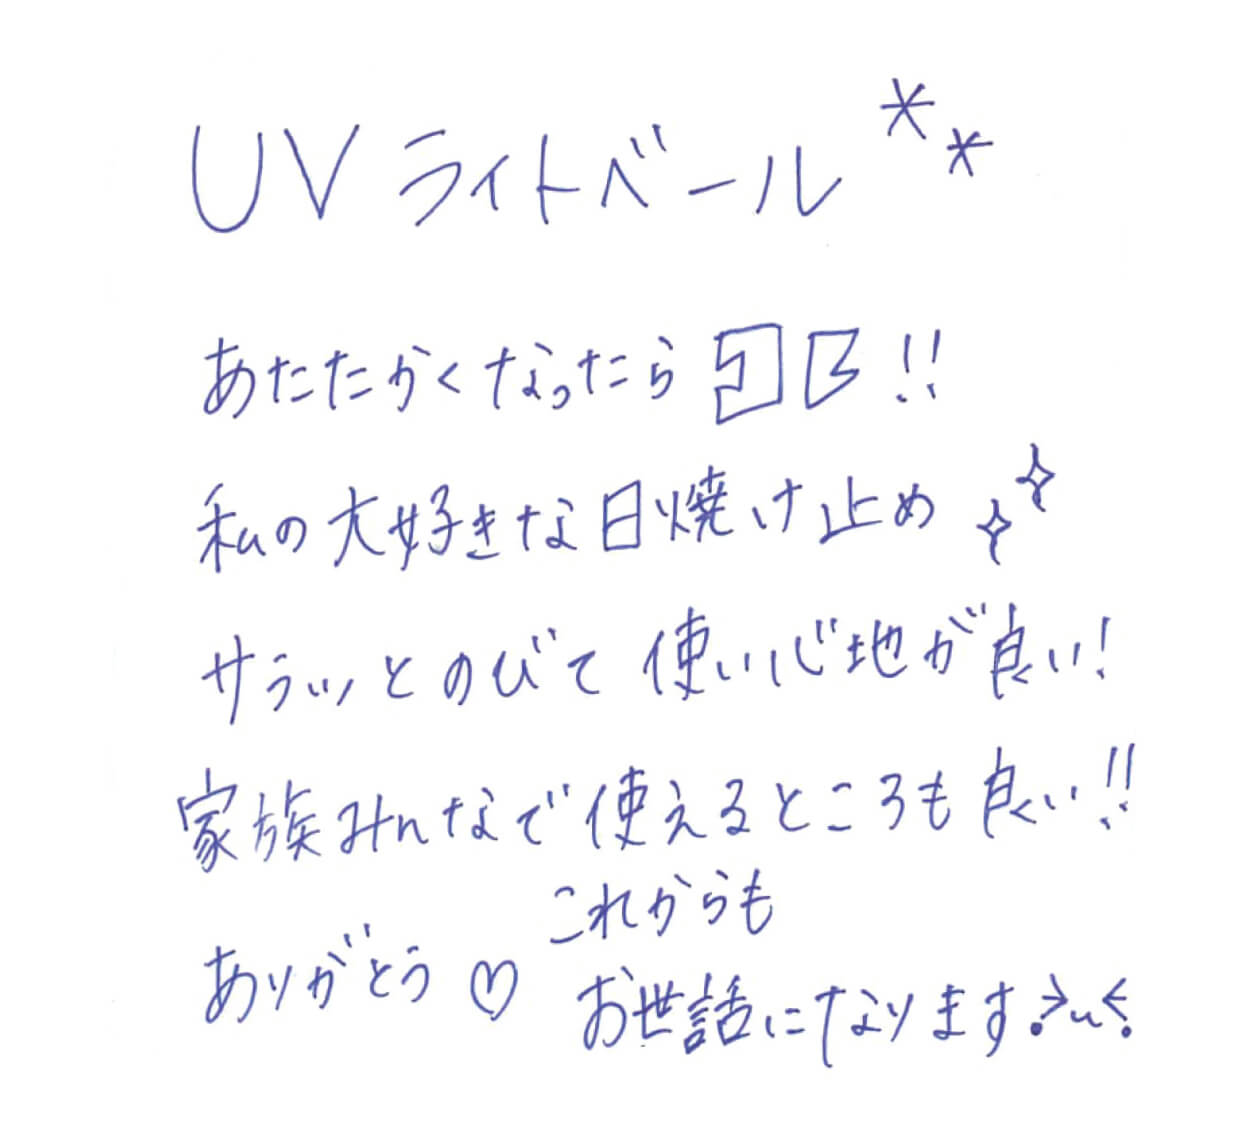 UVライトベール**
あたたかくなったらコレ!!
私の大好きな日焼け止め✧✧
サラッとのびて使い心地が良い!
家族みんなで使えるところも良い!!
ありがとう♡
これからも
お世話になります